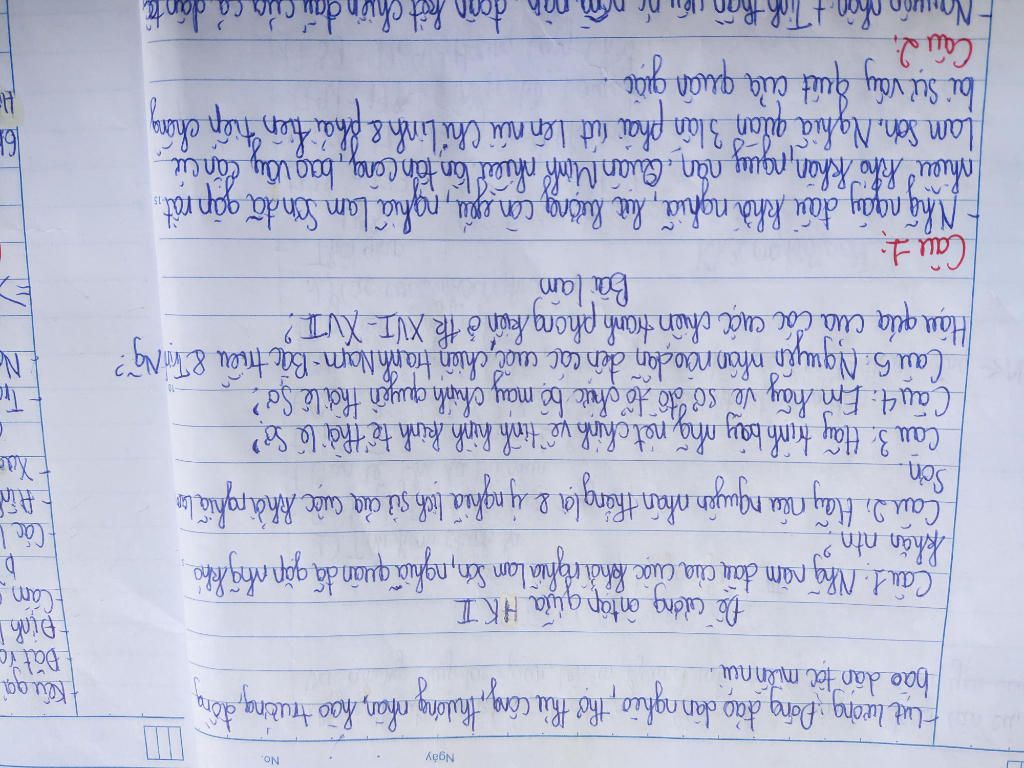 Ngày No.
- Lực lượng: Đông đảo dân nghèo, thợ thủ công, thương nhân, hào trưởng, đồng
bào dân tộc miền núi.
Đề cương ôn tập giữa HK II
Câu 1: Nhg năm đầu của cuộc khởi nghĩa Lam Sơn, nghĩa quân đã gặp nhg khó
khăn ntn?
Câu 2: Hãy nêu nguyên nhân thắng lợi & ý nghĩa lịch sử của cuộc khởi nghĩa Lam
Sơn
Câu 3: Hãy trình bày nhg nét chính về tình hình kinh tế thời Lê Sơ?
Câu 4: Em hãy vẽ sơ đồ tổ chức bộ máy chính quyền thời Lê Sơ?
Câu 5: Nguyên nhân nào dẫn đến các cuộc chiến tranh Nam - Bắc triều & Trịnh Ng~?
Hậu quả của các cuộc chiến tranh phong kiến ở tk XVI - XVII?
Bài làm
Câu 1:
- Nhg ngày đầu khởi nghĩa, lực lượng còn yếu, nghĩa Lam Sơn đã gặp rất
nhiều khó khăn, nguy nan. Quân Minh nhiều lần tấn công, bao vây căn cứ
Lam Sơn. Nghĩa quân 3 lần phải rút lên núi Chí Linh & phải liên tiếp chống
lại sự vây quét của quân giặc.
Câu 2:
- Nguyên nhân: + Tinh thần yêu nc nồng nàn, đoàn kết chiến đấu của cả dân tộc
- Kêu gọi
- Đất
- Định
- Căn
- Các
- Định